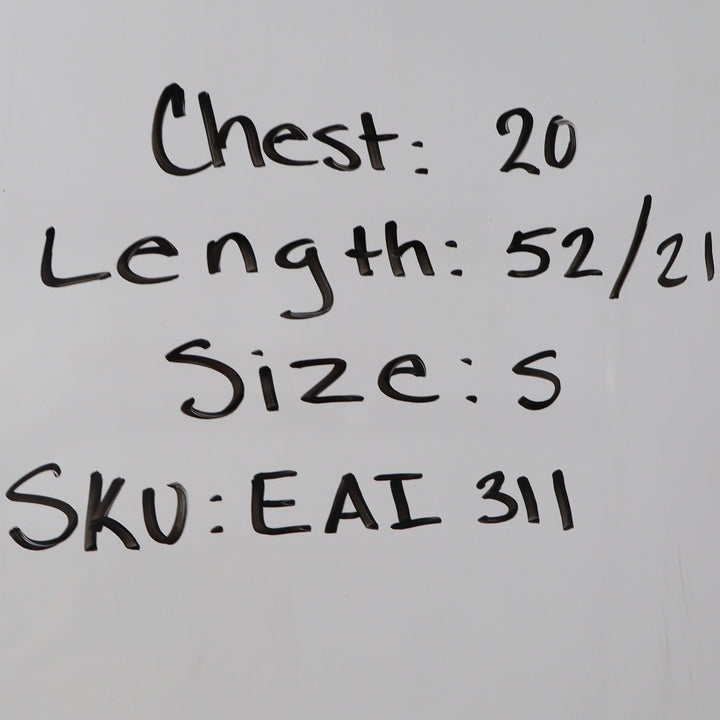 Chest: 20
Length: 52/21
Size: S
SKU: EAI 311